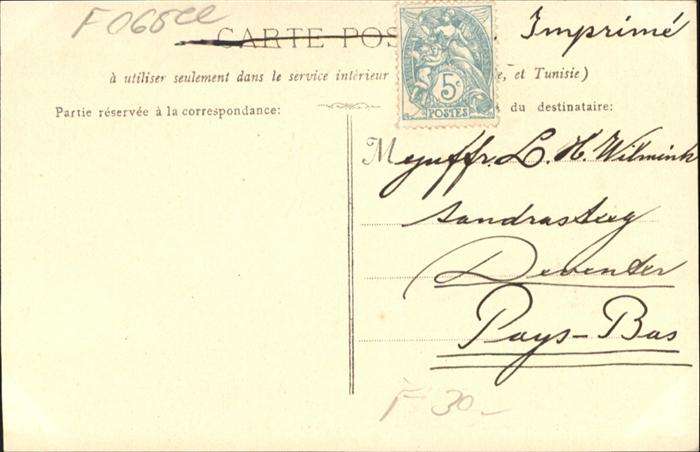 F 065ce
CARTE POS Imprimé
à utiliser seulement dans le service intérieur e, et Tunisie)
5c
POSTES
Partie réservée à la correspondance: s du destinataire:
Mejuffr. L. H. Wilmink
Sandrasteeg
Deventer
Pays-Bas
F 30-